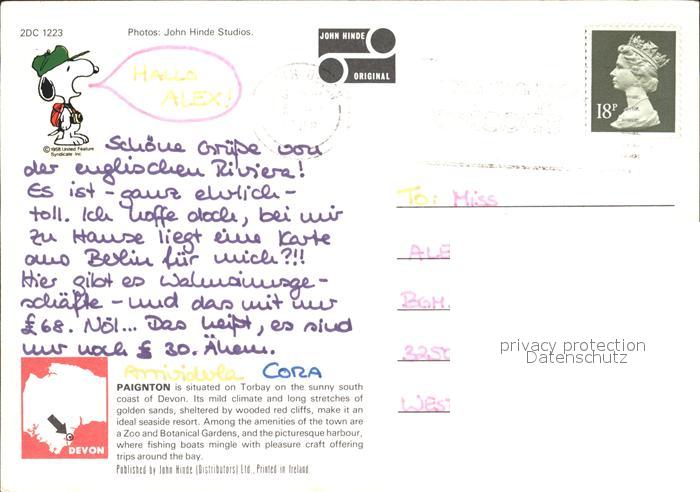 2DC 1223
Photos: John Hinde Studios.
JOHN HINDE
ORIGINAL
18P
© 1958 United Feature
Syndicate Inc
HALLO
ALEX!
Schöne Grüße von
der englischen Riviera!
Es ist - ganz ehrlich -
toll. Ich hoffe doch, bei mir
zu Hause liegt eine Karte
aus Berlin für mich?!!
Hier gibt es Wahnsinnsge-
schäfte - und das mit nur
£ 68. Nöl... Das heißt, es sind
nur noch £ 30. Ähem.
Arrividula CORA
To: Miss
ALE
BGM.
325
WES
privacy protection
Datenschutz
DEVON
PAIGNTON is situated on Torbay on the sunny south
coast of Devon. Its mild climate and long stretches of
golden sands, sheltered by wooded red cliffs, make it an
ideal seaside resort. Among the amenities of the town are
a Zoo and Botanical Gardens, and the picturesque harbour,
where fishing boats mingle with pleasure craft offering
trips around the bay.
Published by John Hinde (Distributors) Ltd., Printed in Ireland.